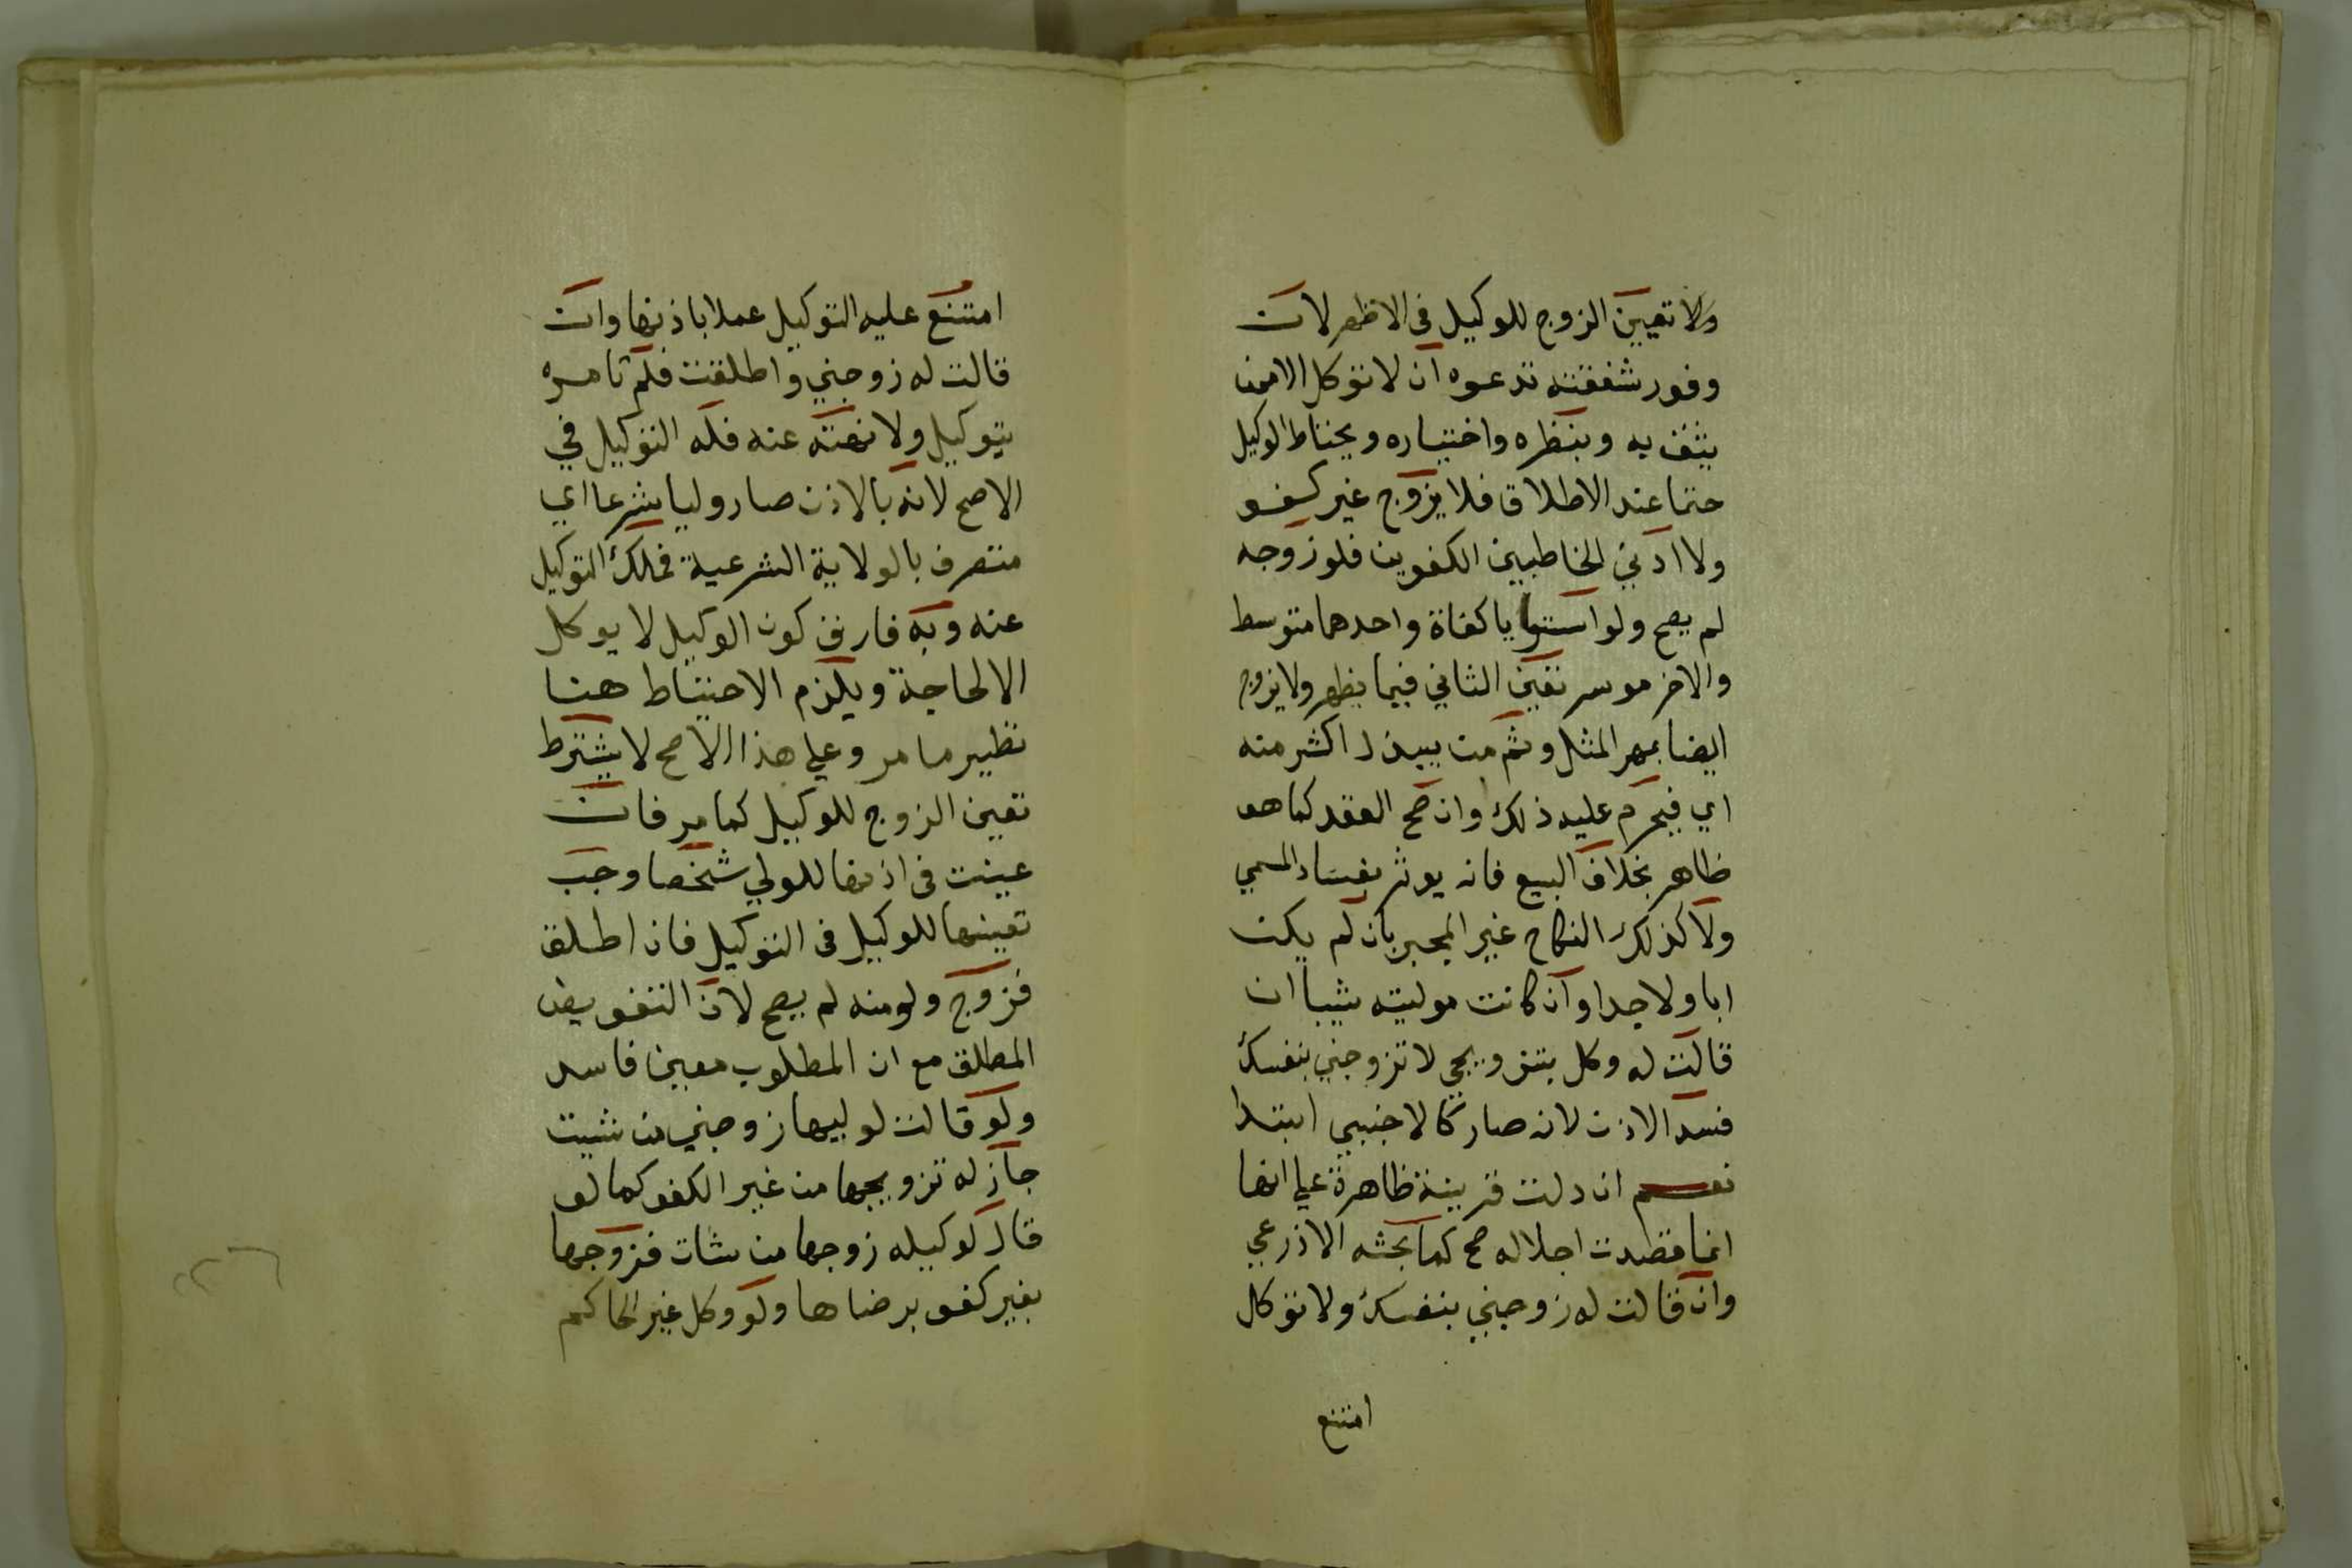 ولا تعيين الزوج للوكيل فى الاظهر لان
وفور شفقته تدعوه ان لا توكل الا من
يثق به وبنظره واختياره ويحتاط الوكيل
حتما عند الاطلاق فلا يزوج غير كفو
ولا ادني الخاطبين الكفوين فلو زوجه
لم يصح ولو استويا كفاة واحدهما متوسط
والاخر موسر تعين الثاني فيما يظهر ولا يزوج
ايضا بمهر المثل وثم من يبذل اكثر منه
اي فيحرم عليه ذلك وان صح العقد كما هو
ظاهر بخلاف البيع فانه يوثر بفساد المسمي
ولا كذلك النكاح غير المجبر بان لم يكن
ابا ولا جدا وان كانت موليته ثيبا ان
قالت له وكل بتزويجي لا تزوجني بنفسك
فسد الاذن لانه صار كالاجنبي ابتدا
نعم ان دلت قرينة ظاهرة علي انها
انما قصدت اجلاله صح كما بحثه الاذرعي
وان قالت له زوجني بنفسك ولا توكل
امتنع
امتنع عليه التوكيل عملا باذنها وان
قالت له زوجني واطلقت فلم تامره
بتوكيل ولا نهته عنه فله التوكيل في
الاصح لانه بالاذن صار وليا شرعا اي
متصرف بالولاية الشرعية فملك التوكيل
عنه وبه فارق كون الوكيل لا يوكل
الا لحاجة ويلزم الاحتياط هنا
نظير ما مر وعلي هذا الاصح لا يشترط
تعين الزوج للوكيل كما مر فان
عينت فى اذنها للولي شخصا وجب
تعيينها للوكيل فى التوكيل فان اطلق
فزوج ولو منه لم يصح لان التفويض
المطلق مع ان المطلوب معين فاسد
ولو قالت لوليها زوجني من شيت
جاز له تزويجها من غير الكفو كما لو
قال لوكيله زوجها من شات فزوجها
بغير كفو برضاها ولو وكل غير الحاكم